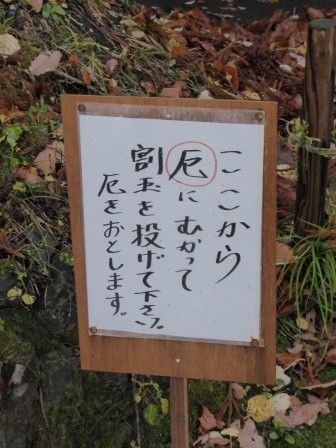 ここから
厄にむかって
割玉を投げて下さい。
厄をおとします。